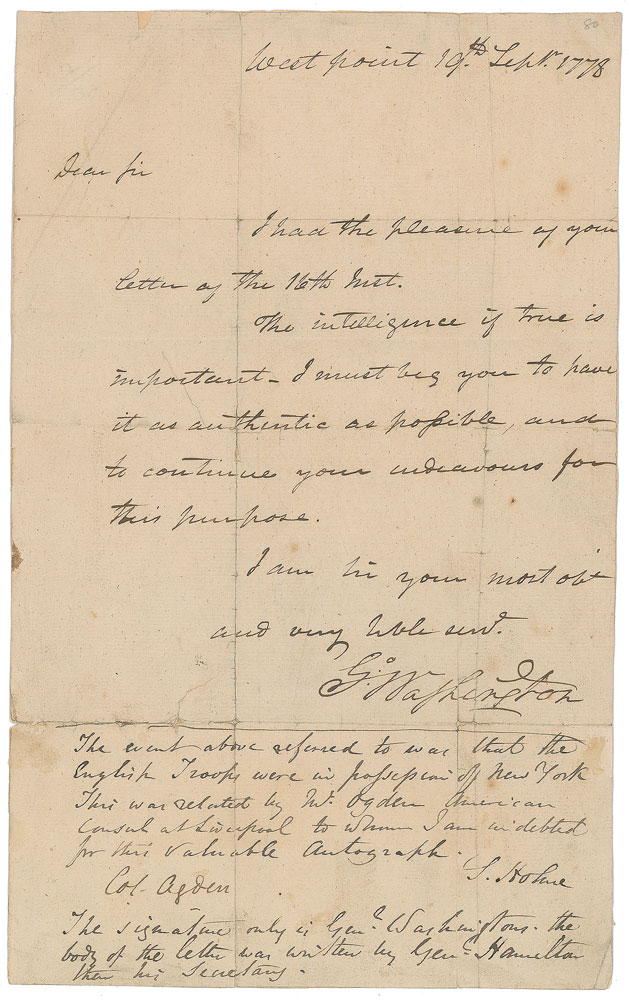 80
West point 19th Septr. 1778
Dear Sir
I had the pleasure of your
letter of the 16th Inst.
The intelligence if true is
important - I must beg you to have
it as authentic as possible, and
to continue your endeavours for
this purpose.
I am Sir your most obt
and very hble servt.
Go: Washington
The event above referred to was that the
English Troops were in possession of New York
This was related by Mr. Ogden American
Consul at Liverpool to whom I am indebted
for this valuable Autograph.
S. Hohne
Col- Ogden
The signature only is Genl. Washingtons. the
body of the letter was written by Genl. Hamilton
then his Secretary.